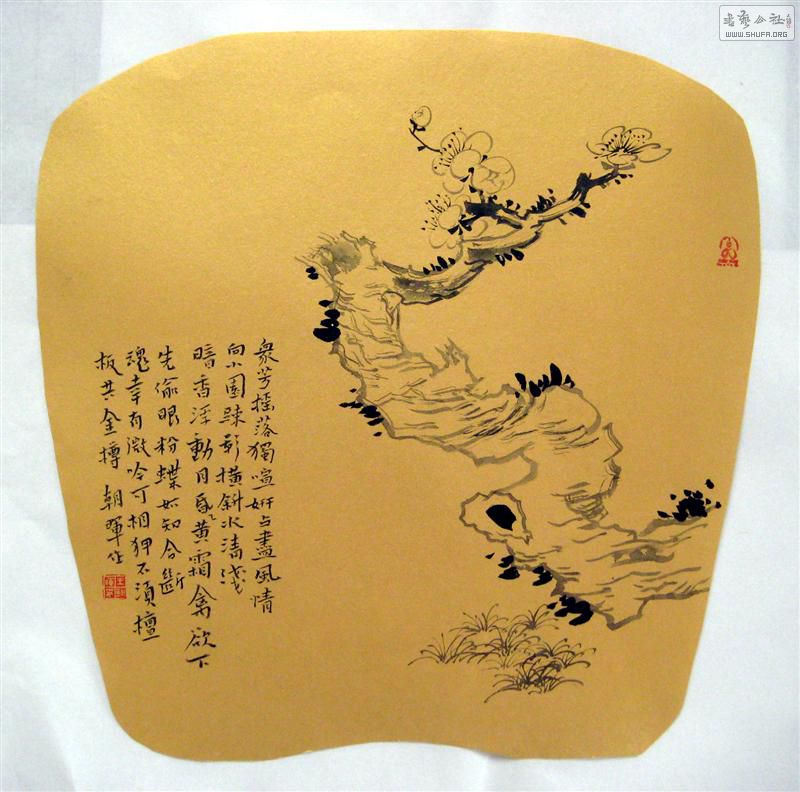 衆芳摇落獨喧妍占盡風情
向小園疎影横斜水清淺
暗香浮動月昏黄霜禽欲下
先偷眼粉蝶如知合斷
魂幸有微吟可相狎不須檀
板共金樽 朝暉作
书艺公社
WWW.SHUFA.ORG